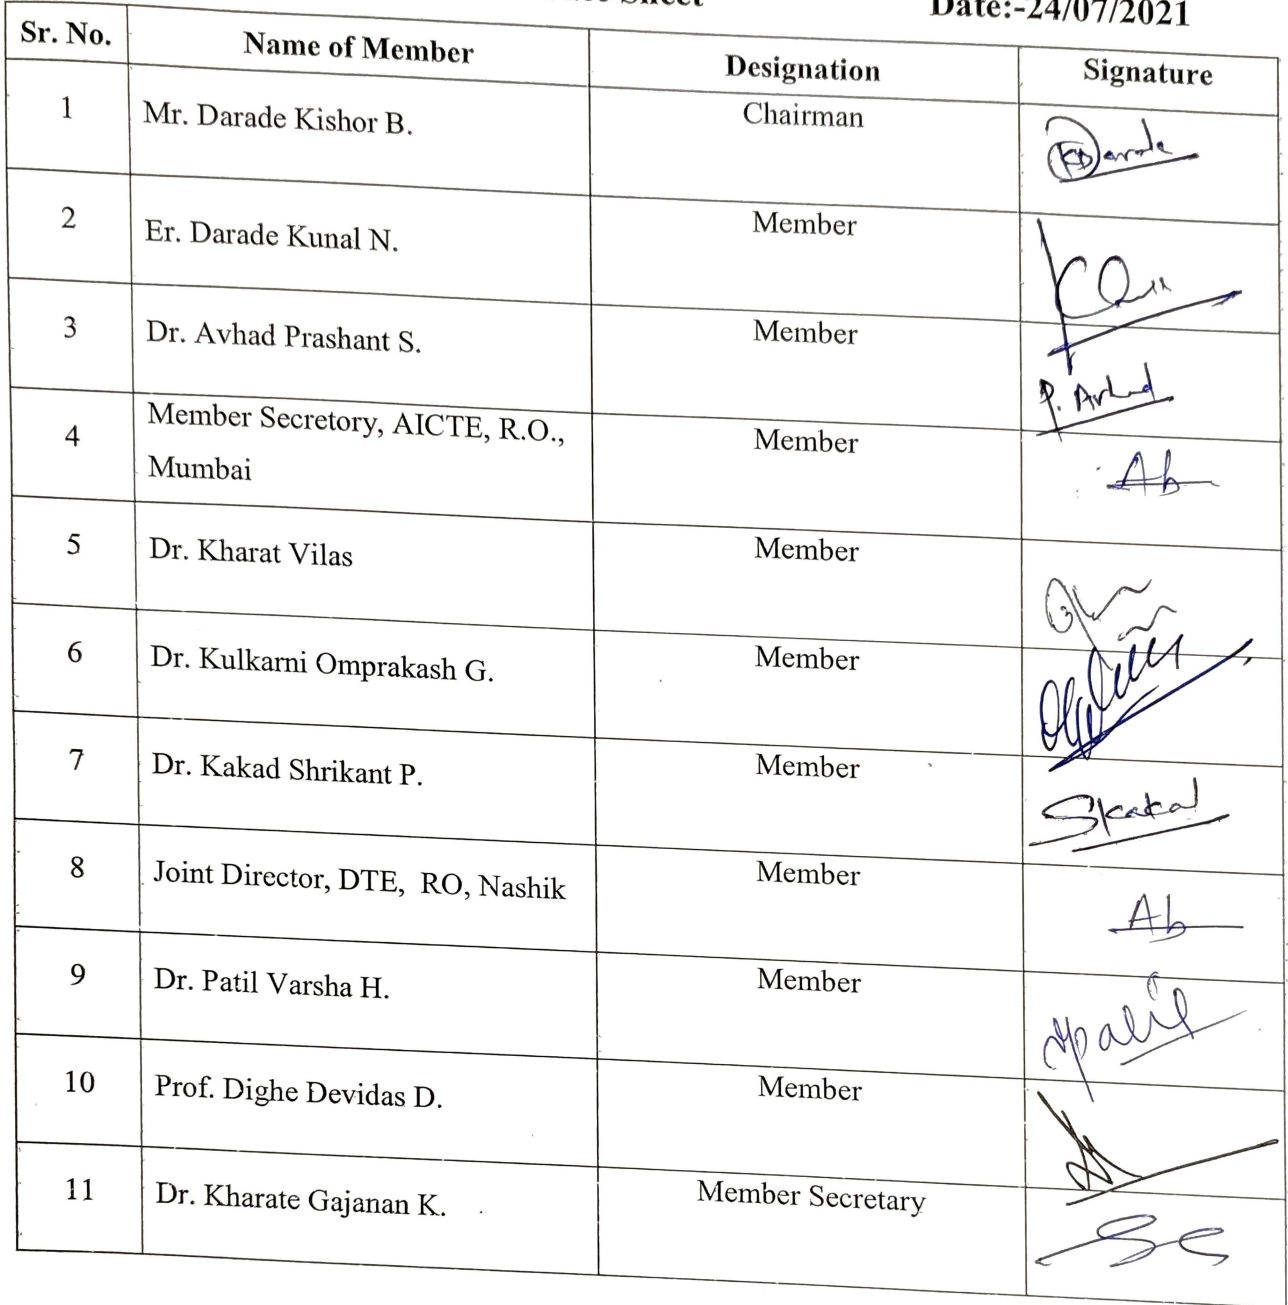 Sheet
Date:-24/07/2021
Sr. No. Name of Member Designation Signature
1 Mr. Darade Kishor B. Chairman Darade
2 Er. Darade Kunal N. Member
3 Dr. Avhad Prashant S. Member P. Avhad
4 Member Secretory, AICTE, R.O., Member Ab
Mumbai
5 Dr. Kharat Vilas Member
6 Dr. Kulkarni Omprakash G. Member
7 Dr. Kakad Shrikant P. Member Skakad
8 Joint Director, DTE, RO, Nashik Member Ab
9 Dr. Patil Varsha H. Member
10 Prof. Dighe Devidas D. Member
11 Dr. Kharate Gajanan K. Member Secretary